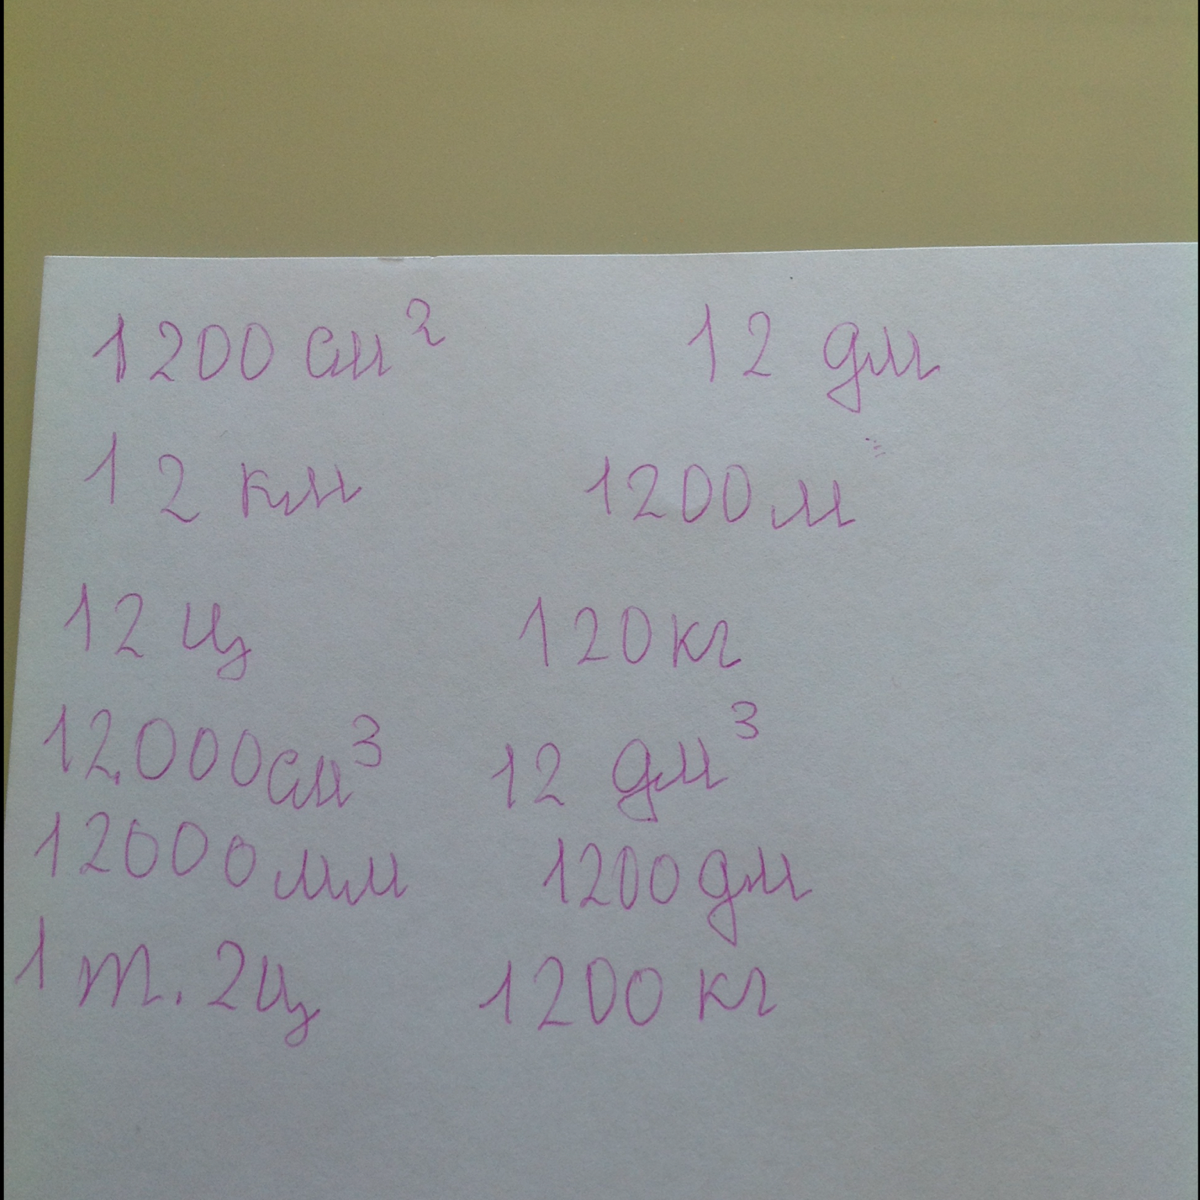 1200 см² 12 дм
12 км 1200 м
12 ц 120 кг
12000 см³ 12 дм³
12000 мм 1200 дм
1 т. 2ц 1200 кг